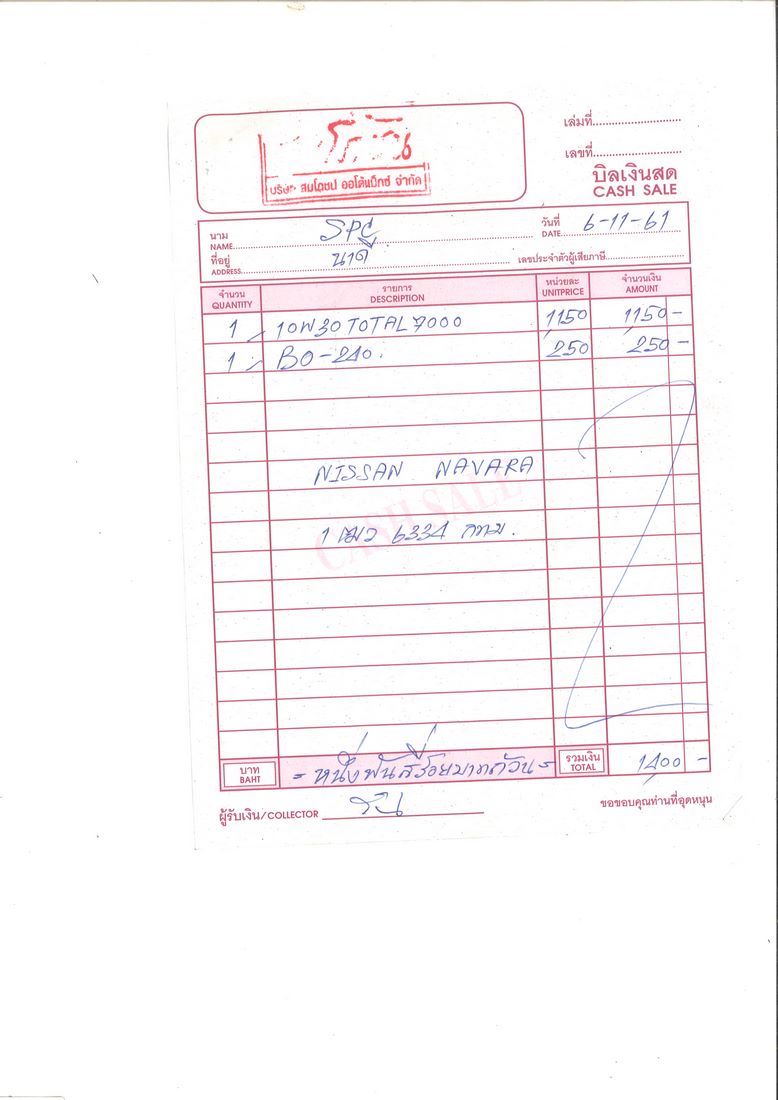 เล่มที่
เลขที่
บิลเงินสด
CASH SALE
บริษัท สมโภชน์ ออโต้แม็กซ์ จำกัด
นาม
NAME SPC
วันที่
DATE 6-11-61
ที่อยู่
ADDRESS นาดี
เลขประจำตัวผู้เสียภาษี
จำนวน รายการ หน่วยละ จำนวนเงิน
QUANTITY DESCRIPTION UNITPRICE AMOUNT
1 10W30 TOTAL 7000 1150 1150 -
1 BO-240. 250 250 -
NISSAN NAVARA
CASH SALE
1 6334 กทม.
บาท
BAHT = หนึ่งพันสี่ร้อยบาทถ้วน =
รวมเงิน
TOTAL 1400 -
ผู้รับเงิน/COLLECTOR
ขอขอบคุณท่านที่อุดหนุน